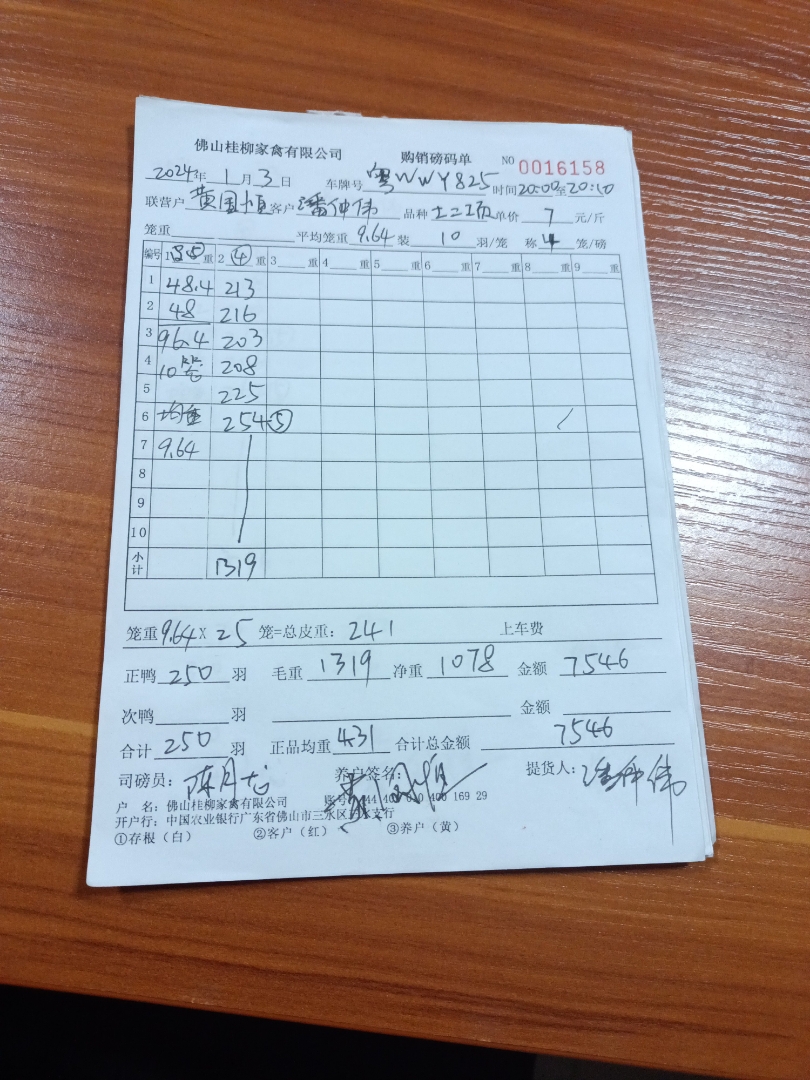 佛山桂柳家禽有限公司 购销磅码单 NO 0016158
2024年 1月 3日 车牌号 粤WWY825 时间 20:00至20:10
联营户 黄国恒 客户 潘仲伟 品种 土二项 单价 7 元/斤
笼重 平均笼重 9.64 装 10 羽/笼 称 4 笼/磅
编号 1 ⑤ 重 2 ④ 重 3 重 4 重 5 重 6 重 7 重 8 重 9 重
1 48.4 213
2 48 216
3 96.4 203
4 10笼 208
5 225
6 均重 254⑤
7 9.64
8
9
10
小计 1319
笼重 9.64 X 25 笼=总皮重: 241 上车费
正鸭 250 羽 毛重 1319 净重 1078 金额 7546
次鸭 羽 金额
合计 250 羽 正品均重 4.31 合计总金额 7546
司磅员: 陈月 养户签名: 黄国恒 提货人: 潘仲伟
户 名: 佛山桂柳家禽有限公司 账号: 44 400 169 29
开户行: 中国农业银行广东省佛山市三水区 支行
①存根(白) ②客户(红) ③养户(黄)